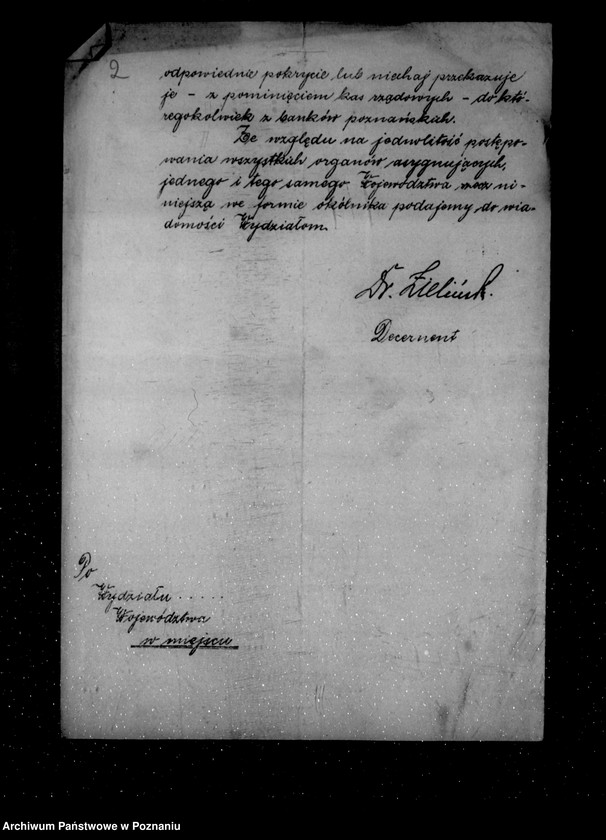 2
odpowiednie pokrycie lub niechaj przekazuje
je – z pominięciem kas rządowych – do któ-
regokolwiek z banków poznańskich.
Ze względu na jednolitość postępo-
wania wszystkich organów asygnujących,
jednego i tego samego Województwa rzecz ni-
niejszą we formie okólnika podajemy do wia-
domości Wydziałom.
Dr. Zieliński.
Decernent
Do
Wydziału .....
Województwa
w miejscu
Archiwum Państwowe w Poznaniu